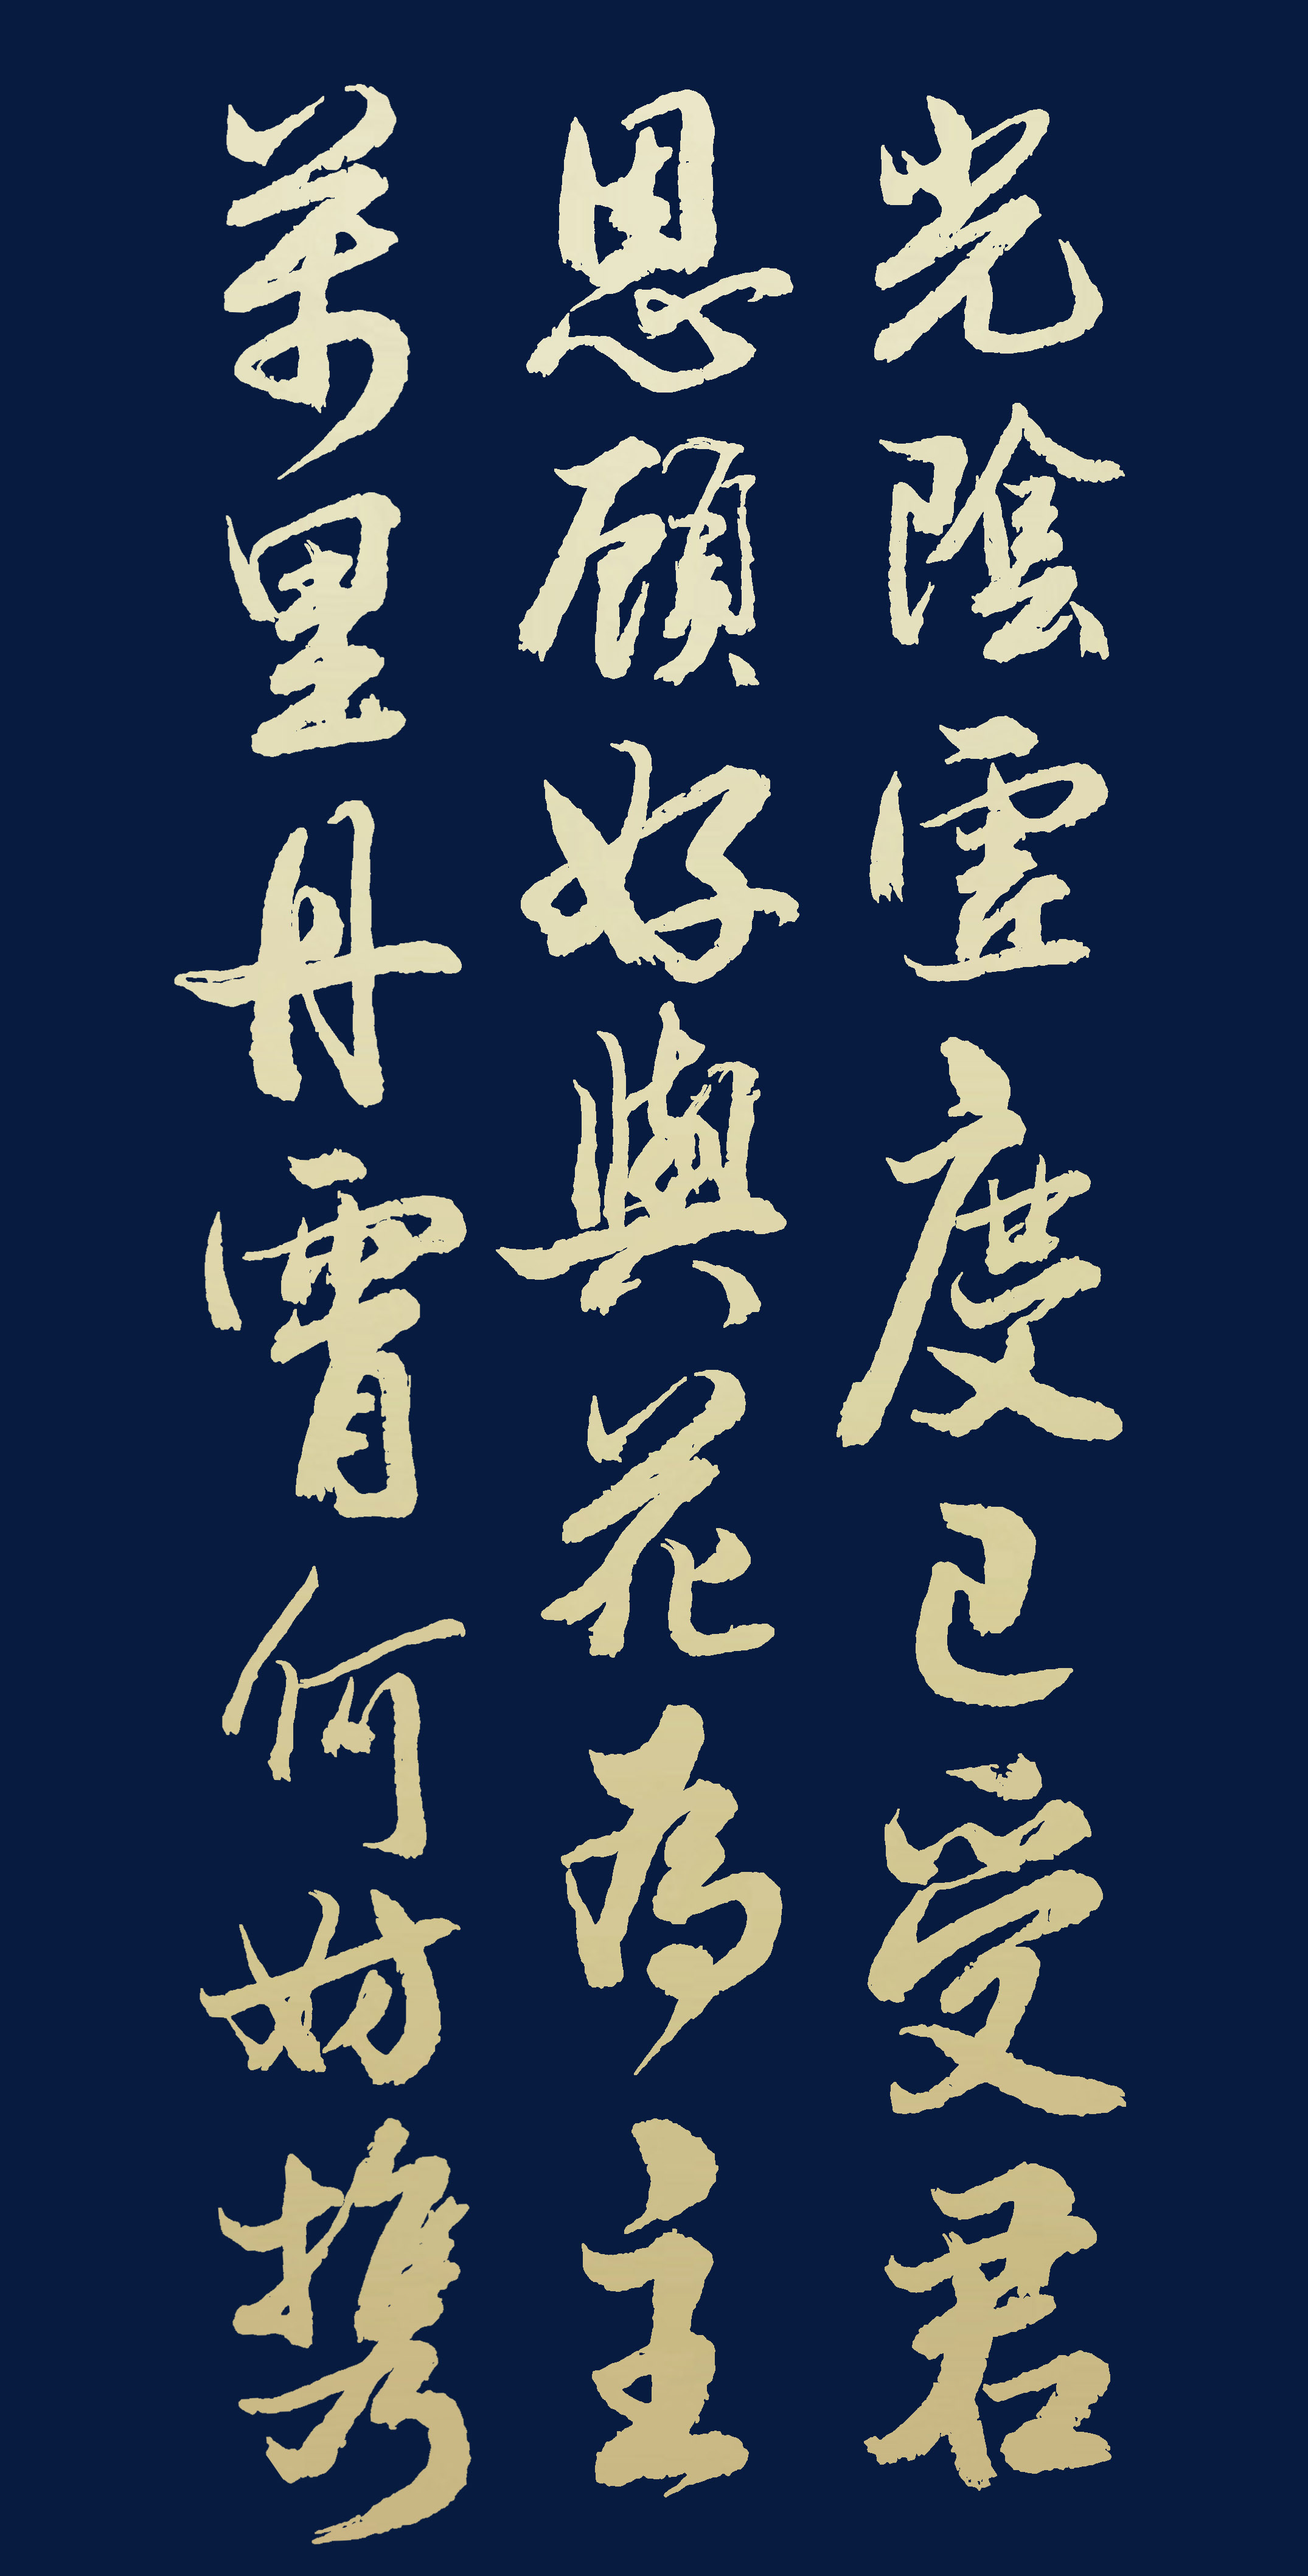 光陰虛度已受君
恩顧好與花為主
萬里丹霄何妨携